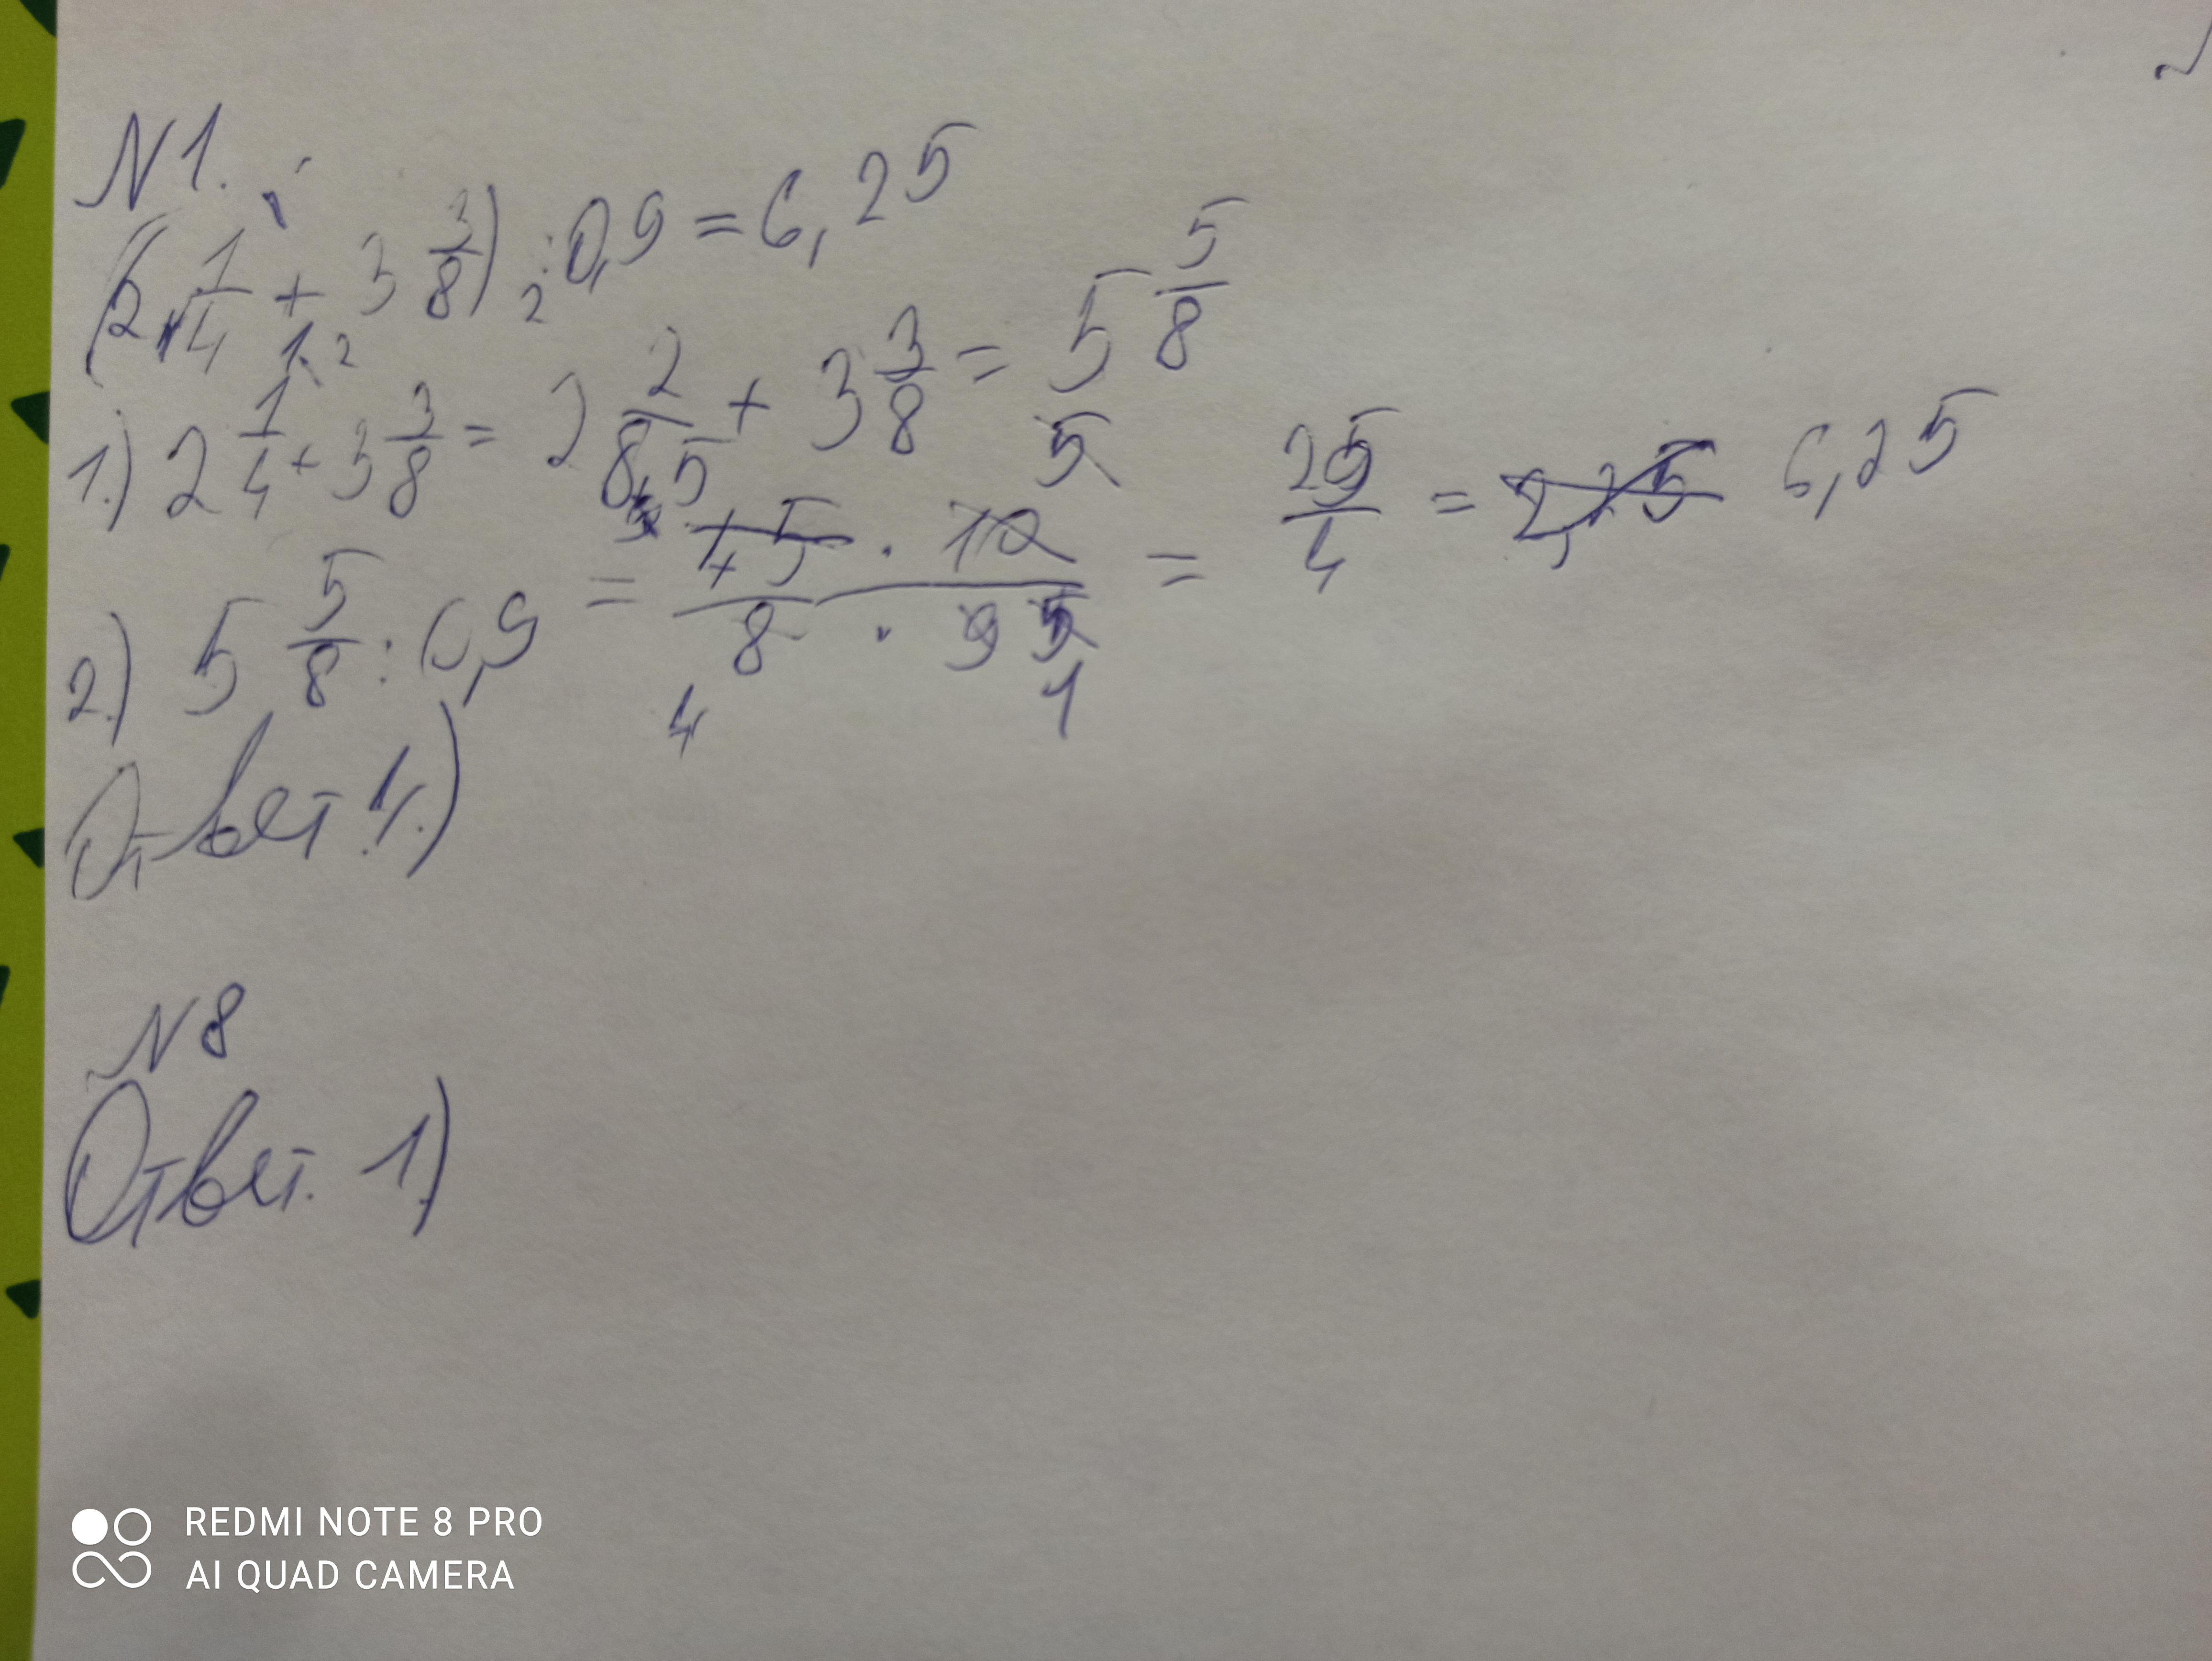 N1.
(2 1/4 + 3 3/8) : 0,9 = 6,25
1 2
2
1.) 2 1/4 + 3 3/8 = 2 2/8 + 3 3/8 = 5 5/8
5 5
2.) 5 5/8 : 0,9 = 45 · 10 / 8 · 9 = 25/4 = 2,25 6,25
4 1
Ответ 1.)
N8
Ответ. 1.)
REDMI NOTE 8 PRO
AI QUAD CAMERA